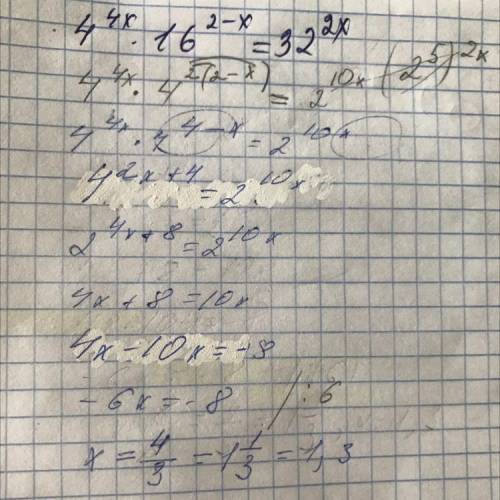 4^{4x} · 16^{2-x} = 32^{2x}
4^{4x} · 4^{2(2-x)} = 2^{10x} (2^5)^{2x}
4^{4x} · 4^{4-x} = 2^{10x}
4^{2x+4} = 2^{10x}
2^{4x+8} = 2^{10x}
4x + 8 = 10x
4x - 10x = -8
- 6x = -8 / : 6
x = 4/3 = 1 1/3 = 1,3